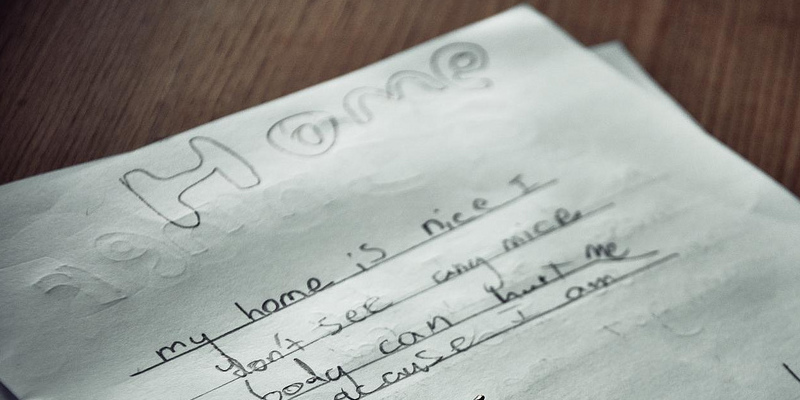 Home
my home is nice I
don't see any mice
body can hurt me
because i am